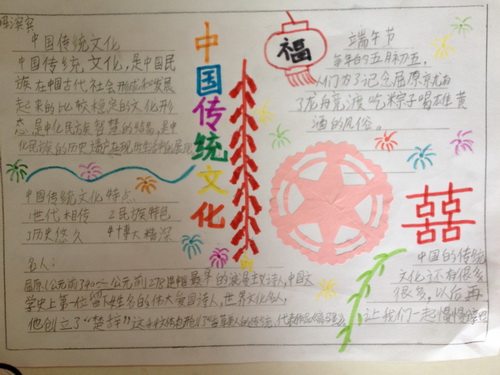 中国传统文化
中国传统文化,是中国民
族在中国古代社会形成和发展
起来的比较稳定的文化形
态,是中华民族智慧的结晶,是中
华民族的历史遗产在现
中国传统文化特点
1世代相传 2民族特色
3历史悠久 4博大精深
名人:
屈原(公元前340-公元前278
中国文
学史上第一位留下姓名的伟大爱国诗人,世界文化名人,
他创立了“楚辞”这
中国传统文化
福
端午节
每年的五月初五,
人们为了记念屈原
了龙舟竞渡 吃粽子 喝雄黄
酒的风俗。
囍
中国的传统
文化还有很多
很多,以后再
让我们一起慢慢